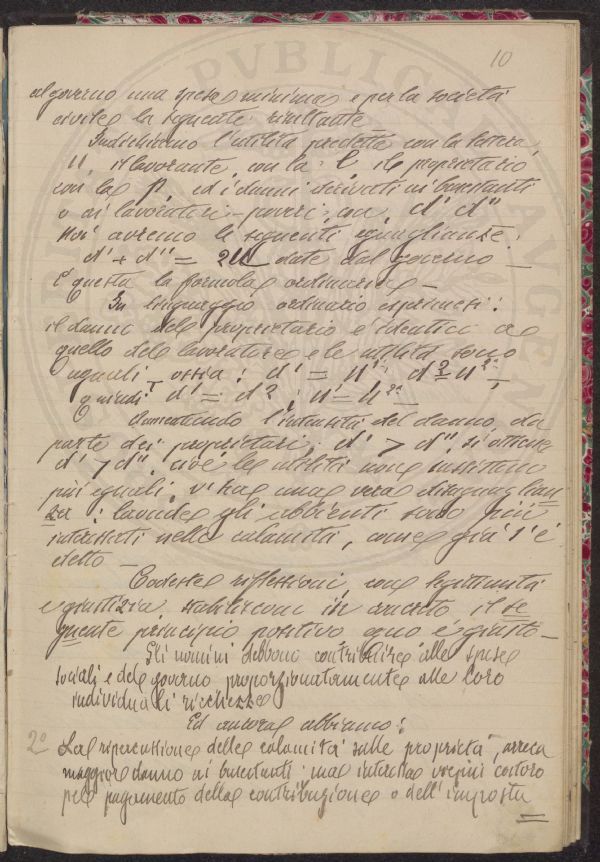 10
al governo una spesa minima e per la società
civile la seguente risultante
Indichiamo l'utilità predetta con la lettera
U, il lavorante, con la l, il proprietario
con la p, ed i danni derivati ai benestanti
o ai lavoratori-poveri, con, d' d"
Noi avremo le seguenti eguaglianze:
d' + d" = 2U date dal governo —
È questa la formola ordinaria —
In linguaggio ordinario esprimesi:
il danno del proprietario è identico a
quello del lavoratore e le utilità sono
uguali, ossia: d' = u'
Quindi d' = d² ; u' = u²
Aumentando l'intensità del danno, da
parte dei proprietari, d' > d", si ottiene
d' > d", cioè le utilità non sussistono
più eguali, v'ha una vera disaguaglian
za: laonde gli abbienti sono più
interessati nelle calamità, come già s'è
detto —
Codeste riflessioni con legittimità
e giustizia stabiliscono in il se
guente principio positivo ch'è giusto —
Gli uomini debbono contribuire alle spese
sociali e del governo proporzionatamente alle loro
individuali ricchezze
Ed ancora abbiamo:
2° La ripercussione delle calamità sulle proprietà, arreca
maggior danno ai benestanti: ma interessa costoro
pel pagamento della contribuzione o dell'imposta